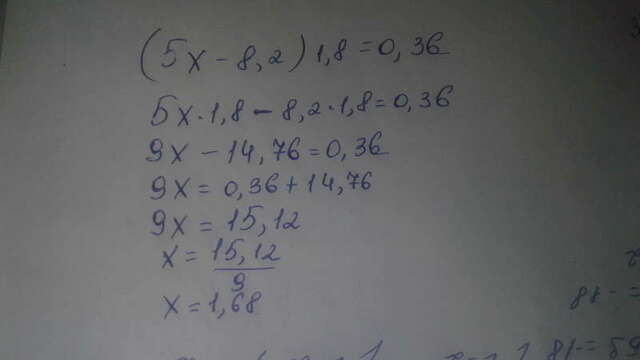 (5x - 8,2) 1,8 = 0,36
5x · 1,8 - 8,2 · 1,8 = 0,36
9x - 14,76 = 0,36
9x = 0,36 + 14,76
9x = 15,12
x = 15,12
9
x = 1,68